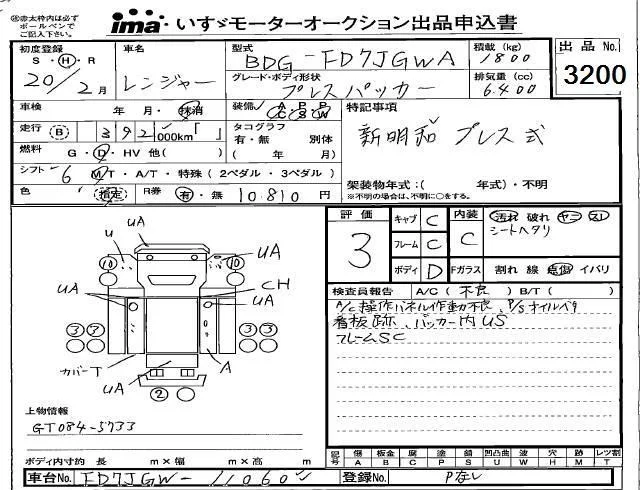 ※赤太枠内は必ず
ボールペンで
ご記入下さい。
ima いすゞモーターオークション出品申込書
初度登録
S・H・R
20/2月
車名
レンジャー
型式
BDG-FD7JGWA
グレード・ボディ形状
プレスパッカー
積載 (kg)
1800
排気量 (cc)
6.400
出品 No.
3200
車検 年・月・抹消
装備 A P P
C S W
特記事項
新明和 プレス式
走行 B 392,000km「 」
タコグラフ
有・無 別体
( 年 月)
燃料 G・D・HV 他( )
シフト 6 MT・A/T・特殊 (2ペダル・3ペダル)
架装物年式:( 年式)・不明
※不明の場合は、不明に〇をする。
色 指定 R券 有・無 10.810円
評価
3
キャブ C
フレーム C
ボディ D
内装 C
汚れ 破れ ヤニ スレ
シートヘタリ
Fガラス 割れ 線 点傷 イバリ
検査員報告 A/C(不良) B/T( )
A/C操作パネル作動不良、P/Sオイルベタ
看板跡、パッカー内US
フレームSC
UA
U
UA
10
10
CH
UA
UA
3
7
3
3
カバーT
UA
A
2
上物情報
GT084-5733
ボディ内寸約 長 m×幅 m×高 m
記号 傷 板金 腐 塗 錆 凹凸曲 波 穴 時 レツ割
A B C P S U W H M T
車台No. FD7JGW-11060
登録No. Pなし